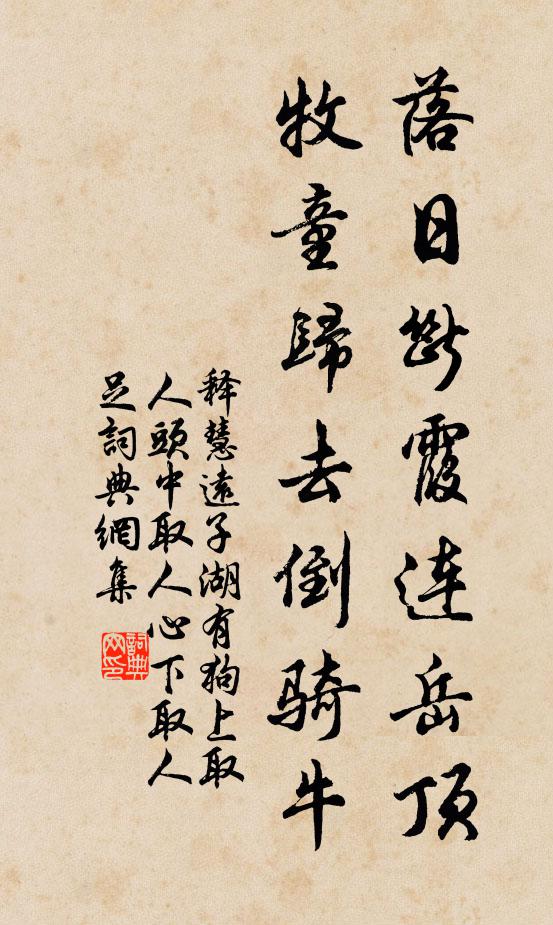 落日斷霞連岳頂
牧童歸去倒騎牛
释慧遠子湖有狗上取
人頭中取人心下取人
足詞典網集
詞典網印